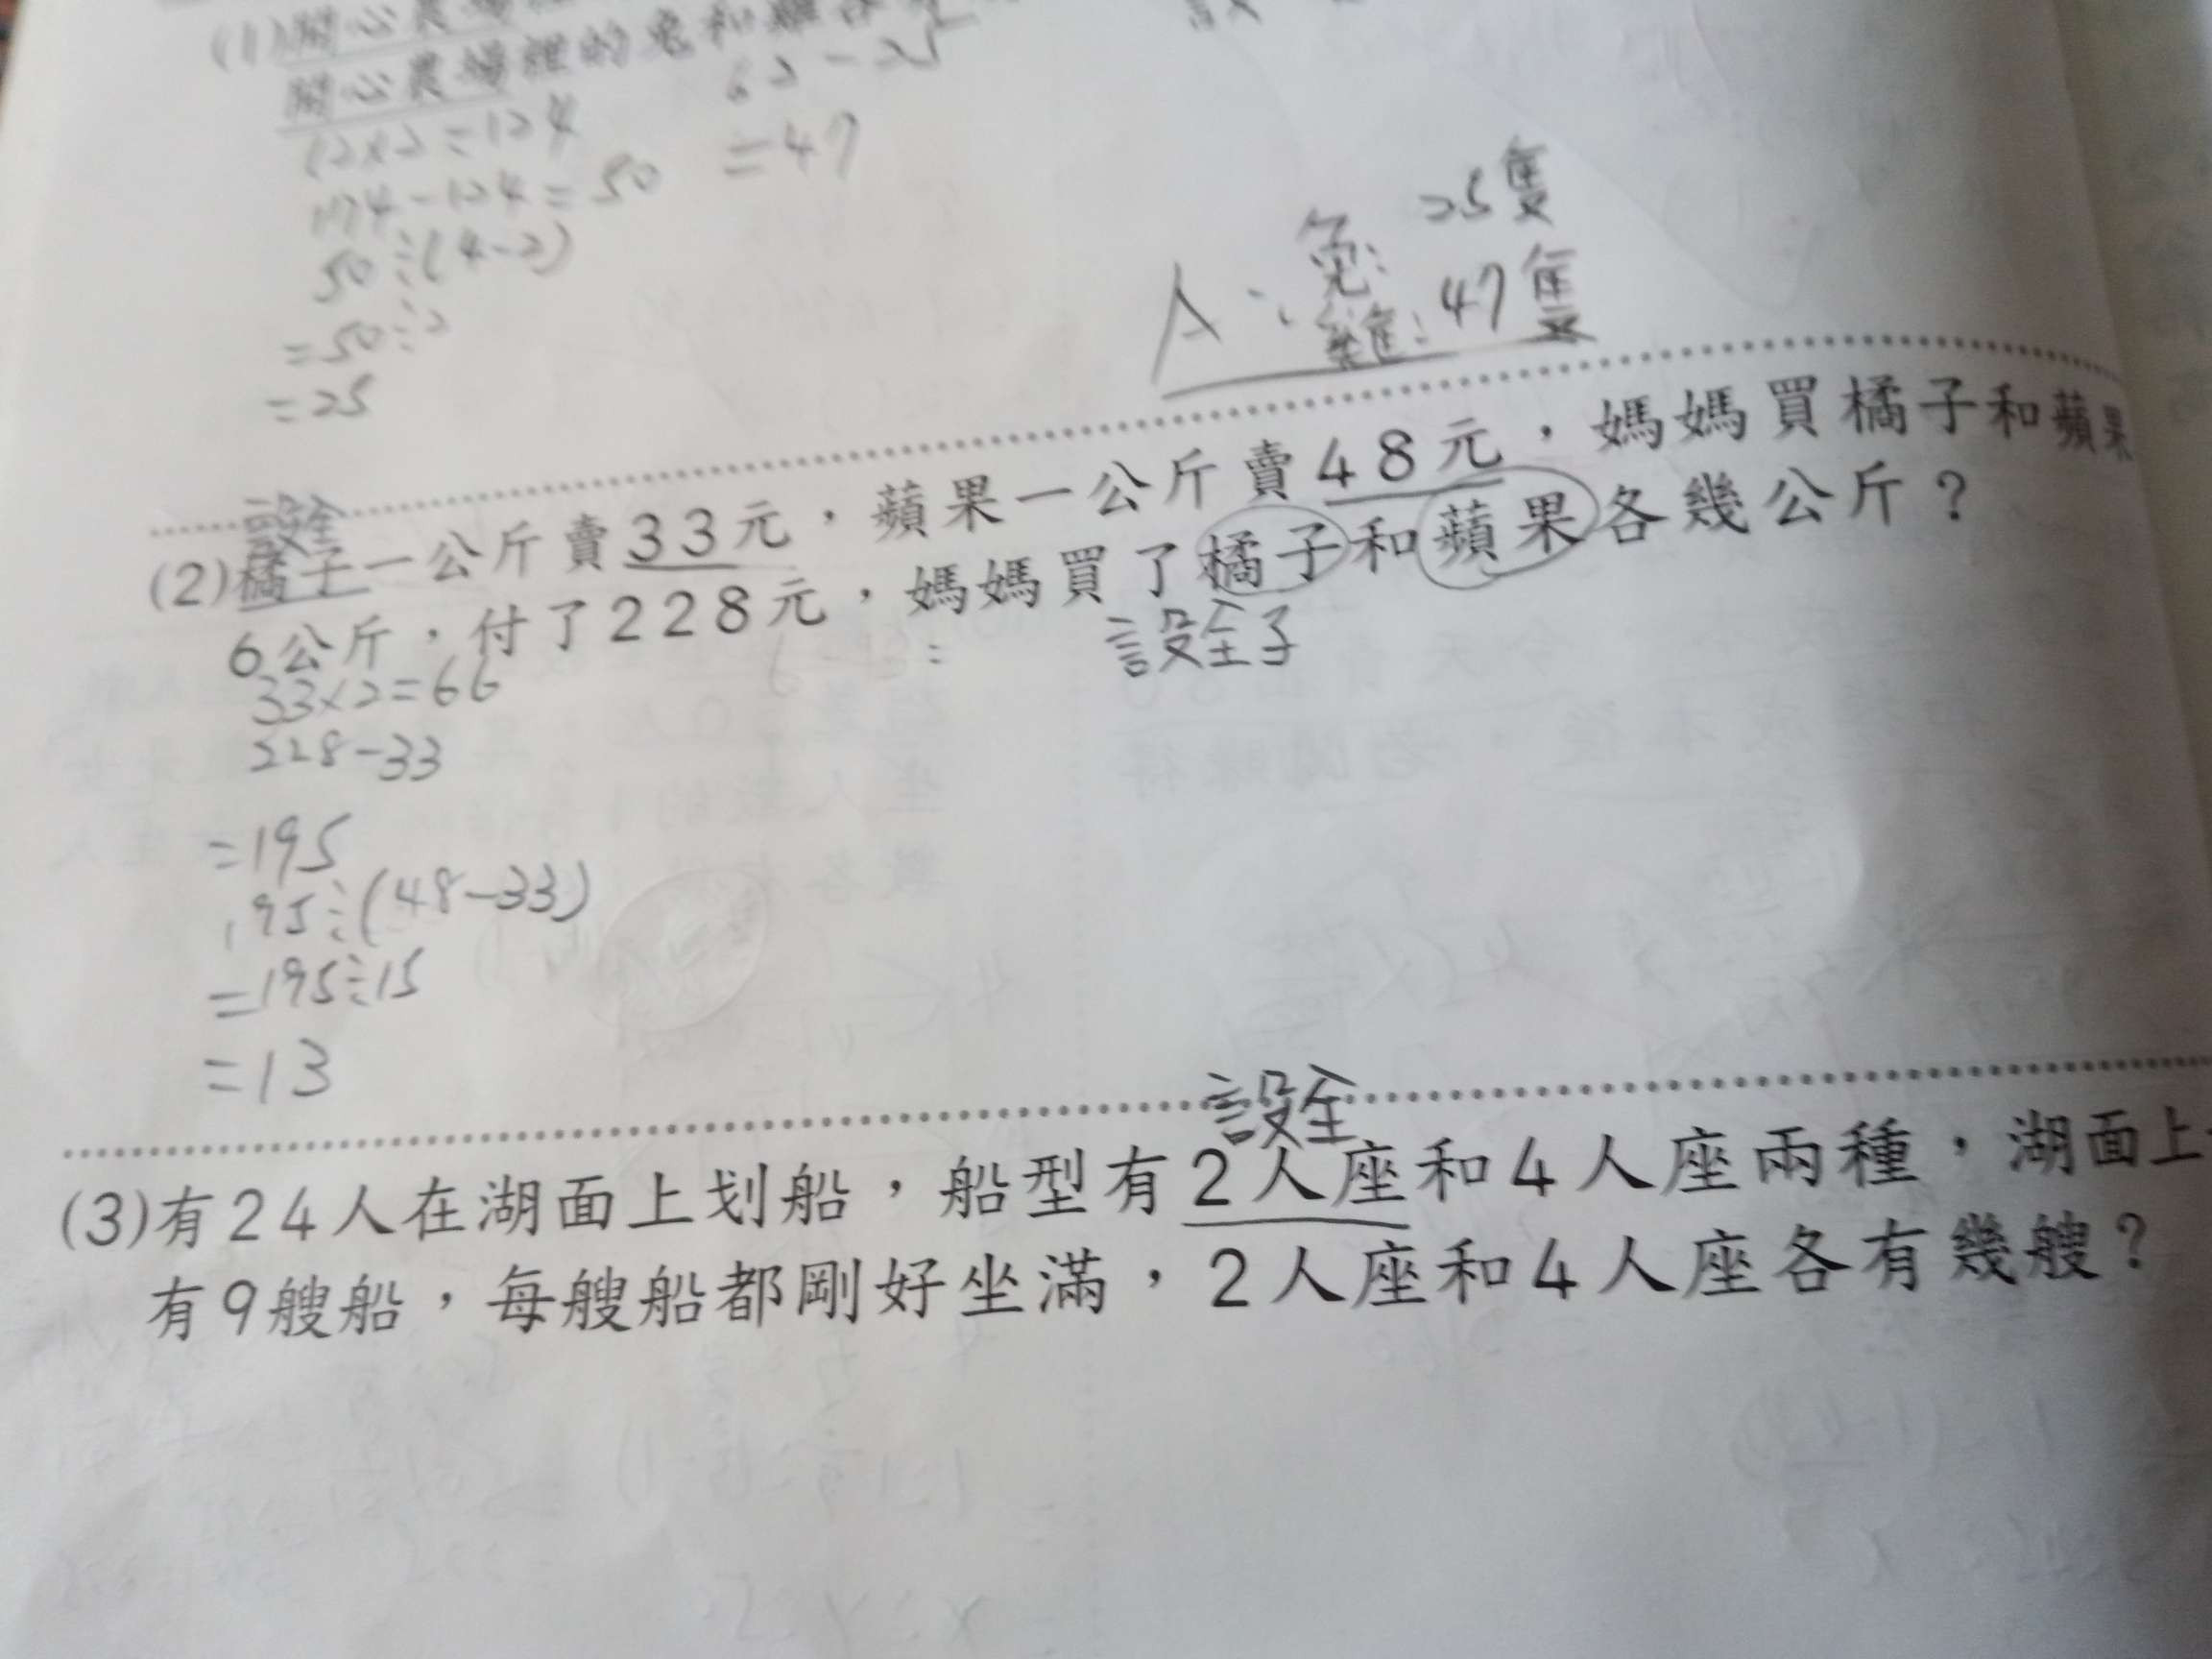 (1)開心農場裡
開心農場裡的兔和雞各
62×2=124
174-124=50
50÷(4-2)
=50÷2
=25
62-25
=47
A：兔：25隻
雞：47隻
設全
(2)橘子一公斤賣33元，蘋果一公斤賣48元，媽媽買橘子和蘋果
6公斤，付了228元，媽媽買了橘子和蘋果各幾公斤？
設全子
33×2=66
228-33
=195
195÷(48-33)
=195÷15
=13
設全
(3)有24人在湖面上划船，船型有2人座和4人座兩種，湖面上
有9艘船，每艘船都剛好坐滿，2人座和4人座各有幾艘？